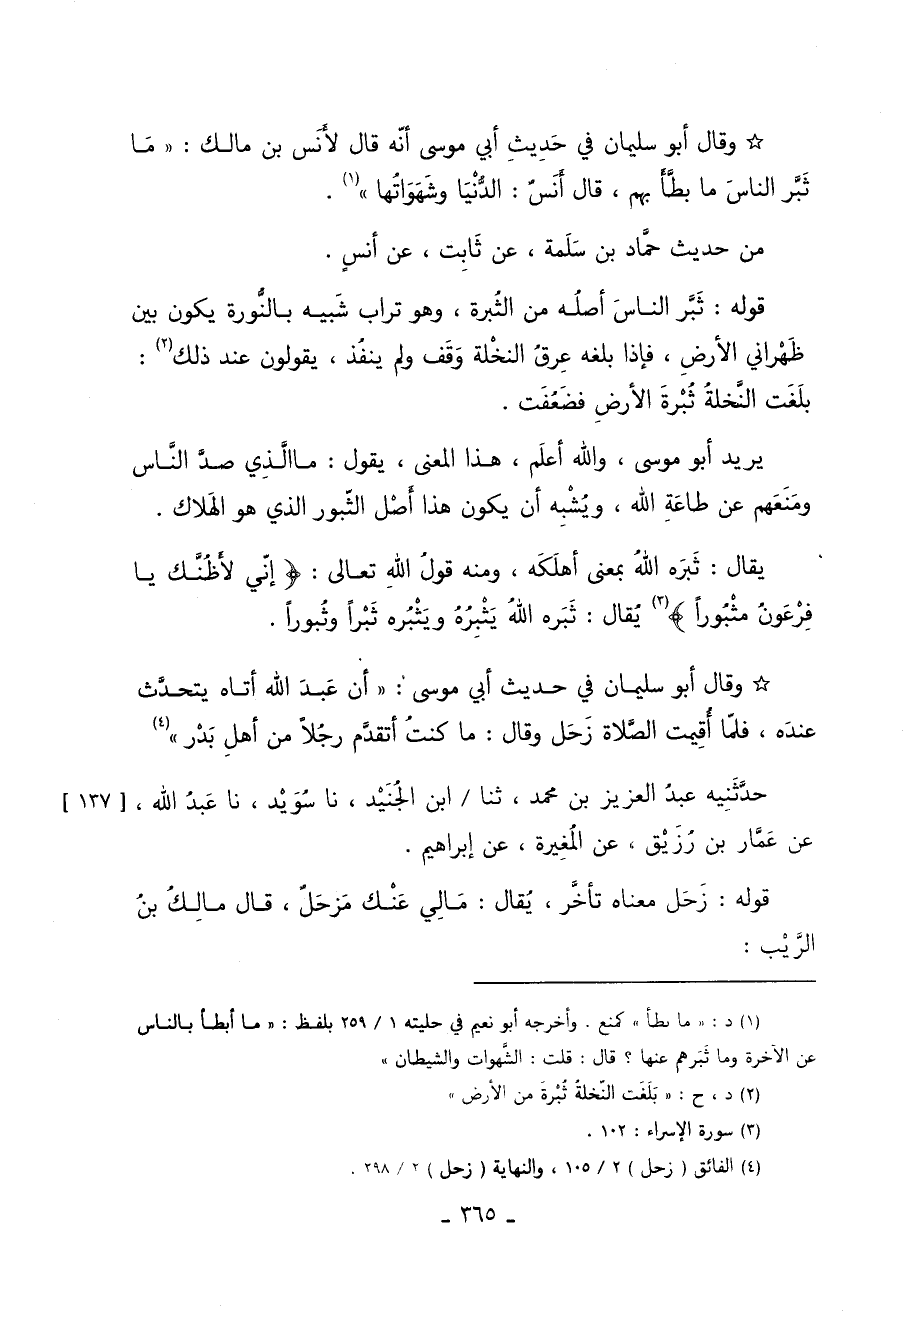 ☆ وقال أبو سليمان في حَدِيثِ أبي موسى أنّه قال لأَنَس بن مالك : « مَا
ثَبَّر الناسَ ما بطَّأَ بهم ، قال أَنَسٌ : الدُّنْيَا وشَهَوَاتُها »(١) .
من حديث حمَّاد بن سَلَمة ، عن ثَابِت ، عن أنسٍ .
قوله : ثَبَّر الناسَ أصلُه من الثُبرة ، وهو تراب شَبيه بالنُّورة يكون بين
ظَهْراني الأرضِ ، فإذا بلغه عِرقُ النخْلة وَقَف ولم ينفُذ ، يقولون عند ذلك(٢) :
بلَغَت النَّخلةُ ثُبْرةَ الأرضِ فضَعُفَت .
يريد أبو موسى ، والله أعلَم ، هذا المعنى ، يقول : ماالَّذِي صدَّ النَّاس
ومَنَعَهم عن طاعَةِ الله ، ويُشْبِه أن يكون هذا أَصْل الثّبور الذي هو الهَلاك .
يقال : ثبَرَه اللهُ بمعنى أهلَكَه ، ومنه قولُ اللهِ تعالى : ﴿ إنّي لأَظُنَّك يا
فِرْعَونُ مثْبُوراً ﴾(٣) يُقال : ثبَره اللهُ يَثْبِرُهُ ويَثْبُره ثَبْراً وثُبوراً .
☆ وقال أبو سليمان في حديث أبي موسى : « أن عَبدَ الله أتاه يتحدَّث
عندَه ، فلمّا أُقِيمت الصَّلاة زَحَل وقال : ما كنتُ أتقدَّم رجُلاً من أهلِ بَدْر »(٤)
حدَّثَنِيه عبدُ العزيز بن محمد ، ثنا / ابن الجُنَيْد ، نا سُوَيْد ، نا عَبدُ الله ، [ ١٣٧ ]
عن عَمَّار بن رُزَيْق ، عن المُغِيرة ، عن إبراهيم .
قوله : زَحَل معناه تأخَّر ، يُقال : مَالِي عَنْك مَزحَلٌ ، قال مالِكُ بنُ
الرَّيْب :
(١) د : « ما بطأ » كمنع . وأخرجه أبو نعيم في حليته ١ / ٢٥٩ بلفظ : « ما أبطأ بالناس
عن الآخرة وما ثَبَرهم عنها ؟ قال : قلت : الشَّهوات والشيطان »
(٢) د ، ح : « بَلَغَت النّخلةُ ثُبْرةً من الأرض »
(٣) سورة الإسراء : ١٠٢ .
(٤) الفائق ( زحل ) ٢ / ١٠٥ ، والنهاية ( زحل ) ٢ / ٢٩٨ .
ـ ٣٦٥ ـ